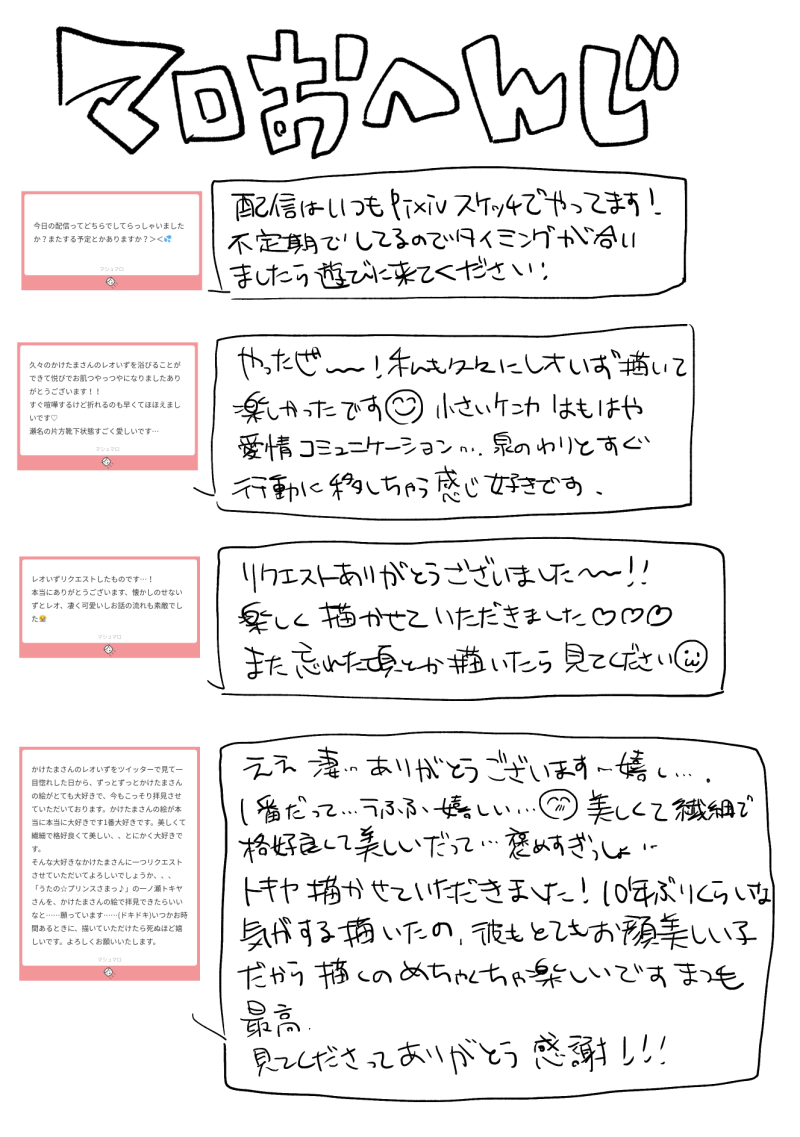 マロおへんじ
今日の配信ってどちらでしてらっしゃいました
か？またする予定とかありますか？＞＜💦
マシュマロ
配信はいつもpixivスケッチでやってます！
不定期でしてるのでタイミングが合い
ましたら遊びに来てください！
久々のかけたまさんのレオいずを浴びることが
できて悦びでお肌つやっつやになりましたあり
がとうございます！！
すぐ喧嘩するけど折れるのも早くてほほえまし
いです♡
瀬名の片方靴下状態すごく愛しいです…
マシュマロ
やったぜ〜〜！私も久々にレオいず描いて
楽しかったです 小さいケンカはもはや
愛情コミュニケーション…泉のわりとすぐ
行動に移しちゃう感じ好きです、
レオいずリクエストしたものです…！
本当にありがとうございます、懐かしのせない
ずとレオ、凄く可愛いしお話の流れも素敵でし
た😭
マシュマロ
リクエストありがとうございました〜〜!!
楽しく描かせていただきました♡♡♡
また忘れた頃とか描いたら見てください
かけたまさんのレオいずをツイッターで見て一
目惚れした日から、ずっとずっとかけたまさん
の絵がとても大好きで、今もこっそり拝見させ
ていただいております。かけたまさんの絵が本
当に本当に大好きです1番大好きです。美しくて
繊細で格好良くて美しい、、とにかく大好きで
す。
そんな大好きなかけたまさんに一つリクエスト
させていただいてよろしいでしょうか、、、
「うたの☆プリンスさまっ♪」の一ノ瀬トキヤ
さんを、かけたまさんの絵で拝見できたらいい
なと……願っています……(ドキドキ)いつかお時
間あるときに、描いていただけたら死ぬほど嬉
しいです。よろしくお願いいたします。
マシュマロ
ええ 凄… ありがとうございます〜嬉し….
1番だって…うふふ 嬉しい… 美しくて繊細で
格好良くて美しいだって…褒めすぎっしょ…
トキヤ描かせていただきました！10年ぶりくらいな
気がする描いたの、彼もとてもお顔美しい子
だから描くのめちゃくちゃ楽しいです まつ毛
最高.
見てくださってありがとう 感謝！！！